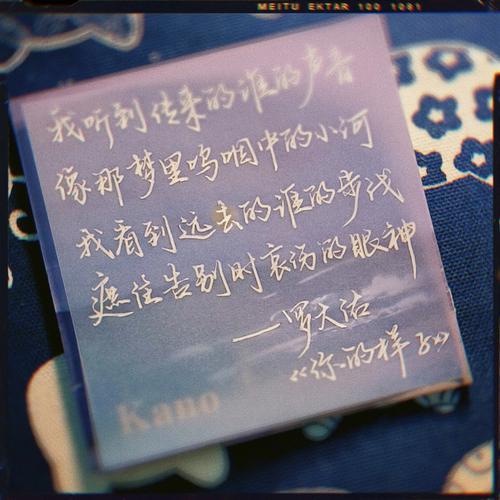 MEITU EKTAR 100 1081
我听到传来的谁的声音
像那梦里呜咽中的小河
我看到远去的谁的步伐
遮住告别时哀伤的眼神
——罗大佑
《你的样子》
Kano